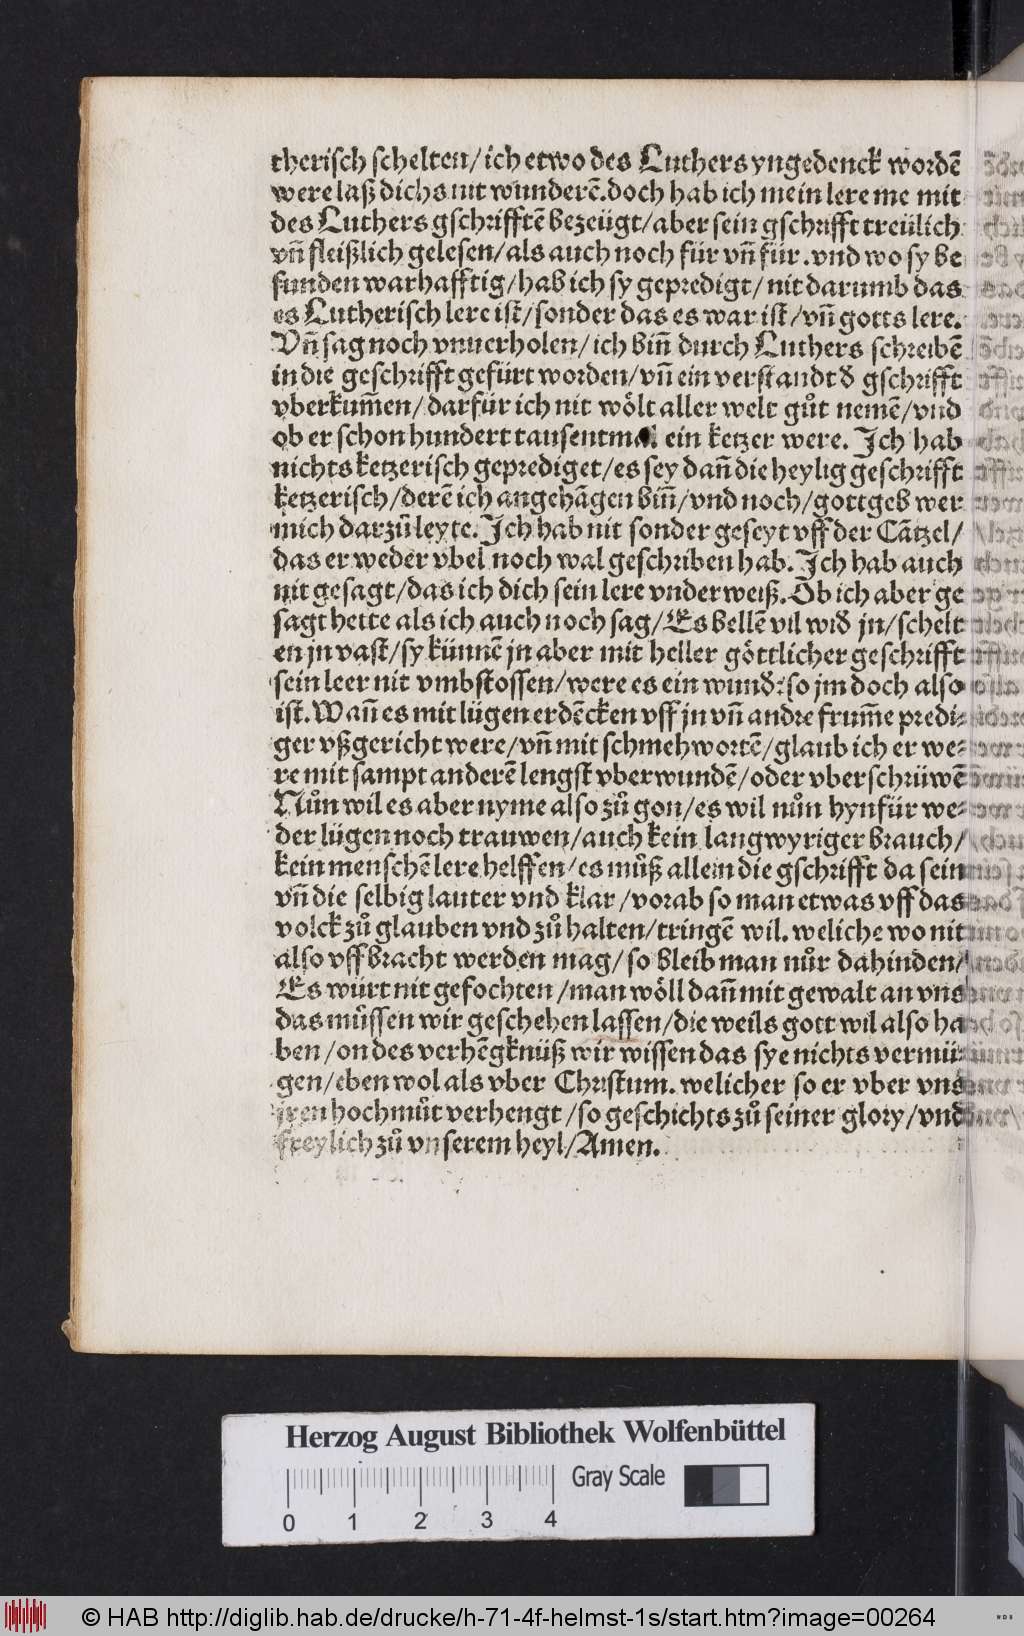 therisch schelten/ ich etwo des Luthers yngedenck wordē
were laß dichs nit wunderē. doch hab ich mein lere me mit
des Luthers gschrifftē bezeügt/ aber sein gschrifft treülich
vñ fleißlich gelesen/ als auch noch für vñ für. vnd wo sy be
funden warhafftig/ hab ich sy gepredigt/ nit darumb das
es Lutherisch lere ist/ sonder das es war ist/ vñ gotts lere.
Vñ sag noch vnuerholen/ ich biñ durch Luthers schreibē
in die geschrifft gefürt worden/ vñ ein verstandt đ gschrifft
vberkum̃en/ darfür ich nit wölt aller welt gůt nemē/ vnd
ob er schon hundert tausentmal ein ketzer were. Ich hab
nichts ketzerisch geprediget/ es sey dañ die heylig geschrifft
ketzerisch/ derē ich angehāgen biñ/ vnd noch/ gottgeb wer
mich darzů leyte. Ich hab nit sonder geseyt vff der Cātzel/
das er weder vbel noch wal geschriben hab. Ich hab auch
nit gesagt/ das ich dich sein lere vnderweiß. Ob ich aber ge
sagt hette als ich auch noch sag/ Es bellē vil wiđ jn/ schelt
en jn vast/ sy künnē jn aber mit heller göttlicher geschrifft
sein leer nit vmbstossen/ were es ein wunđ: so jm doch also
ist. Wañ es mit lügen erdēcken vff jn vñ andre frum̃e predi⸗
ger vßgericht were/ vñ mit schmehwortē/ glaub ich er we⸗
re mit sampt anderē lengst vberwundē/ oder vberschrüwē
Nůn wil es aber nyme also zů gon/ es wil nůn hynfür we⸗
der lügen noch trauwen/ auch kein langwyriger brauch/
kein menschē lere helffen/ es můß allein die gschrifft da sein
vñ die selbig lauter vnd klar/ vorab so man etwas vff das
volck zů glauben vnd zů halten/ tringē wil. weliche wo nit
also vffbracht werden mag/ so bleib man nůr dahinden/
Es würt nit gefochten/ man wöll dañ mit gewalt an vns
das müssen wir geschehen lassen/ die weils gott wil also ha
ben/ on des verhēgknüß wir wissen das sye nichts vermü⸗
gen/ eben wol als vber Christum. welicher so er vber vns
jren hochmůt verhengt/ so geschichts zů seiner glory/ vnd
freylich zů vnserem heyl/ Amen.
Herzog August Bibliothek Wolfenbüttel
Gray Scale
0 1 2 3 4
© HAB http://diglib.hab.de/drucke/h-71-4f-helmst-1s/start.htm?image=00264